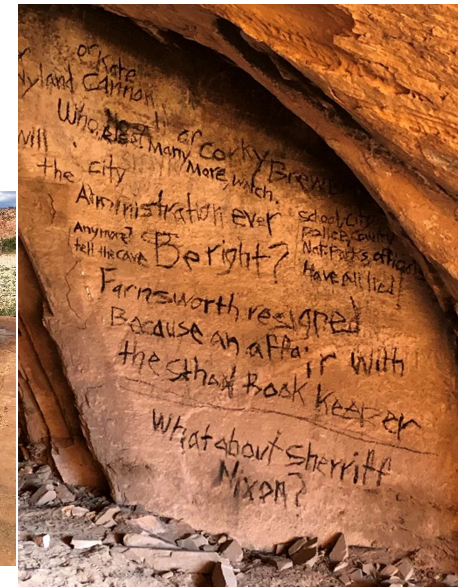 or Kate
Wyland Cannon
Who, else! Many More, watch.
or Corky Brewer
will
the city
Administration ever
Be right?
Anymore?
tell the cave
School, City
police, County
Nat. Parks, officials
Have all lied!
Farnsworth resigned
Because an affair with
the School Book Keeper
What about Sherriff
Nixon?